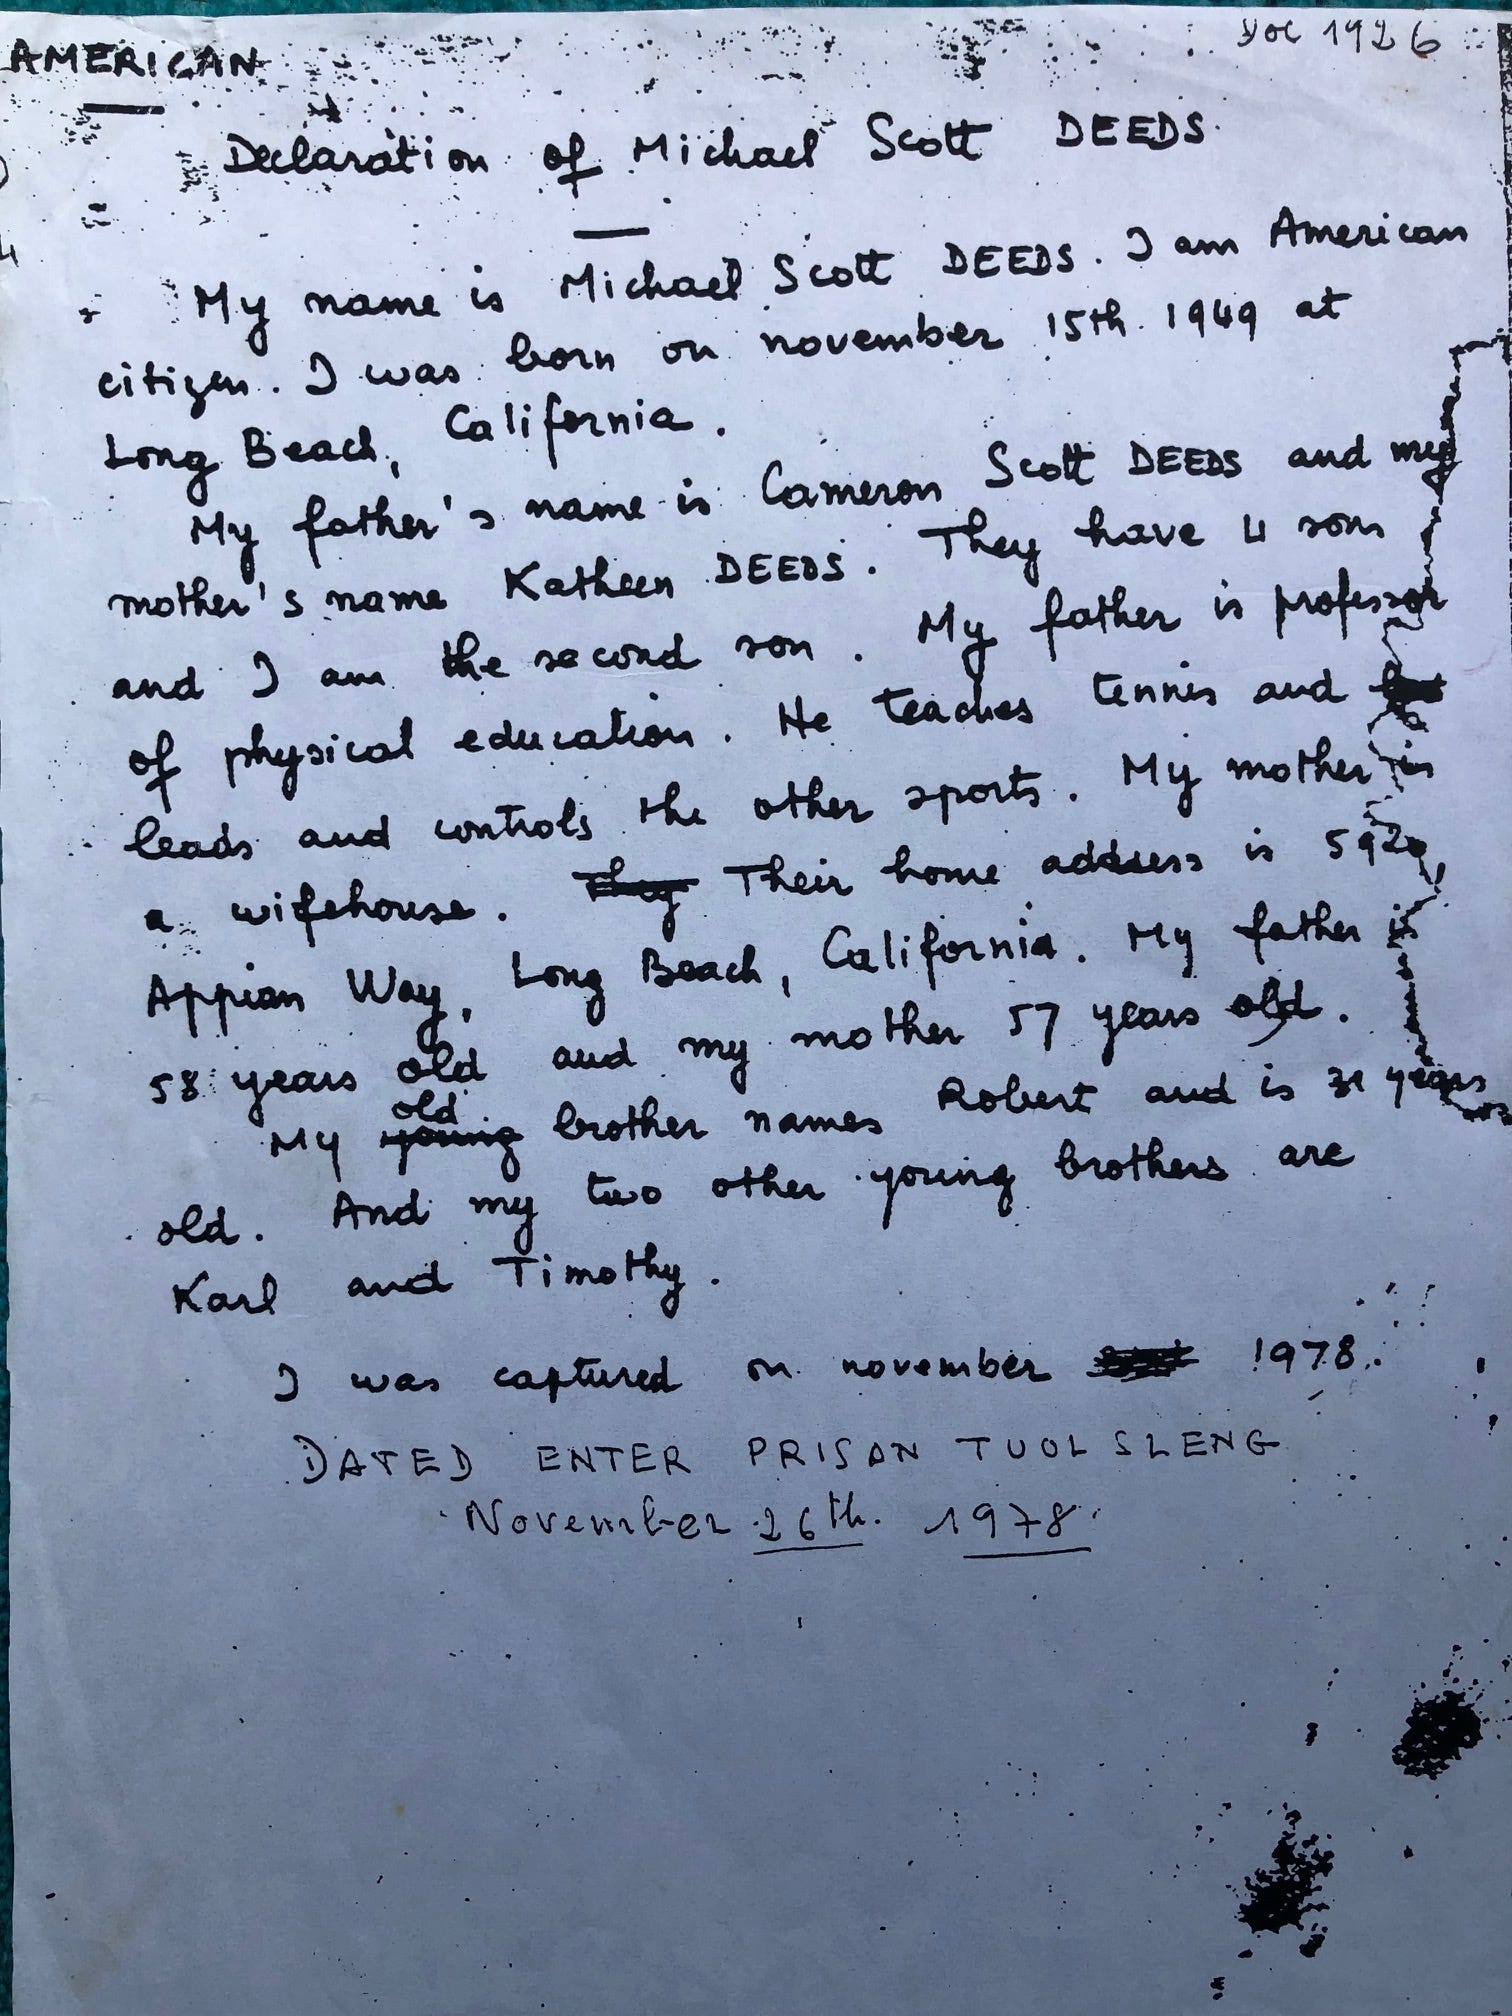 AMERICAN
Doc 1926
Declaration of Michael Scott DEEDS
My name is Michael Scott DEEDS. I am American
citizen. I was born on november 15th 1949 at
Long Beach, California.
My father's name is Cameron Scott DEEDS and my
mother's name Katheen DEEDS. They have 4 sons
and I am the second son. My father is professor
of physical education. He teaches tennis and
leads and controls the other sports. My mother is
a wifehouse. They Their home address is 592
Appian Way, Long Beach, California. My father is
58 years old and my mother 57 years old.
old
My young brother names Robert and is 31 years
old. And my two other young brothers are
Karl and Timothy.
I was captured on november 1978.
DATED ENTER PRISAN TUOL SLENG
November 26th. 1978.